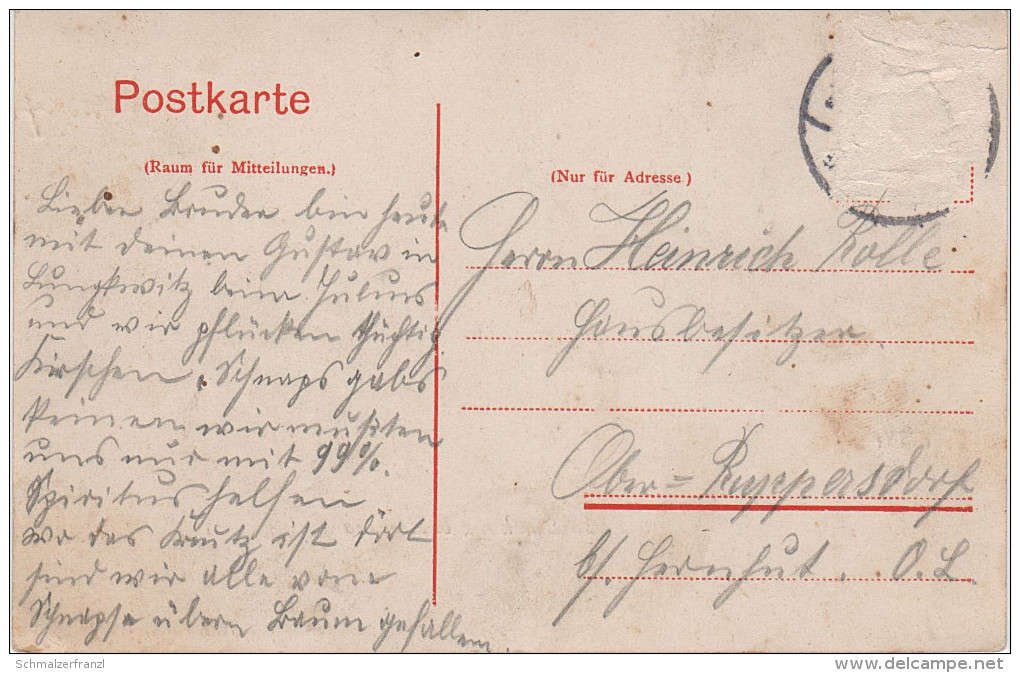 Postkarte
(Raum für Mitteilungen.)
Lieber Bruder bin heute
mit deinen Gustav in
Lungkwitz beim Julius
und wir pflücken tüchtig
Kirschen, Schnaps gabs
keinen wir mußten
uns nur mit 99%
Spiritus helfen
wo das Kreutz ist dort
sind wir alle vom
Schnapse übern Baum gefallen.
(Nur für Adresse)
Herrn Heinrich Rolle
Hausbesitzer
Ober-Ruppersdorf
b/. Herrnhut. O.L.
Schmalzerfranzl
www.delcampe.net